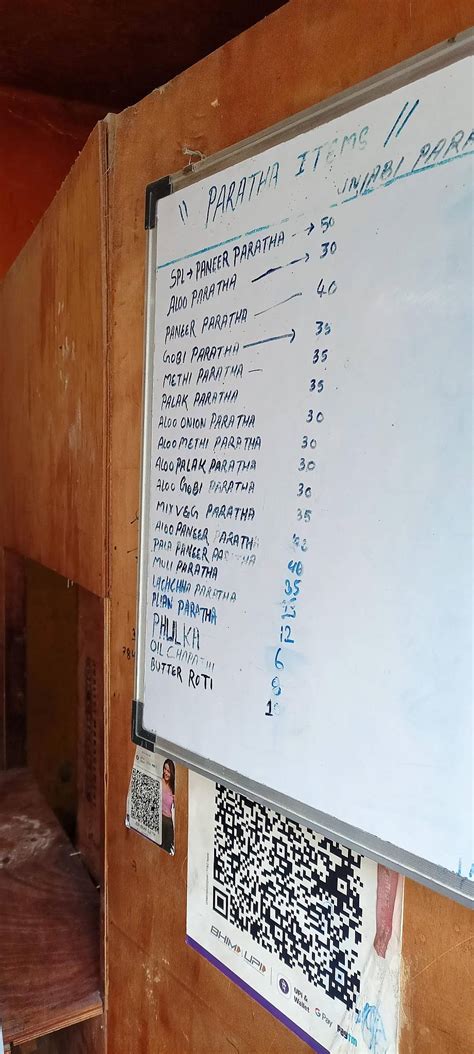 " PARATHA ITEMS "
UNJABI PARA
SPL → PANEER PARATHA → 50
ALOO PARATHA → 30
PANEER PARATHA — 40
GOBI PARATHA → 35
METHI PARATHA — 35
PALAK PARATHA 35
ALOO ONION PARATHA 30
ALOO METHI PARATHA 30
ALOO PALAK PARATHA 30
ALOO GOBI PARATHA 30
MIX VEG PARATHA 35
ALOO PANEER PARATHA
PALA PANEER 40
MULI PARATHA 35
LACHCHHA PARATHA
PLIAN PARATHA 12
PHULKA 6
OIL CHAPATHI 8
BUTTER ROTI
BHIM UPI
UPI & Wallet
G Pay
Paytm